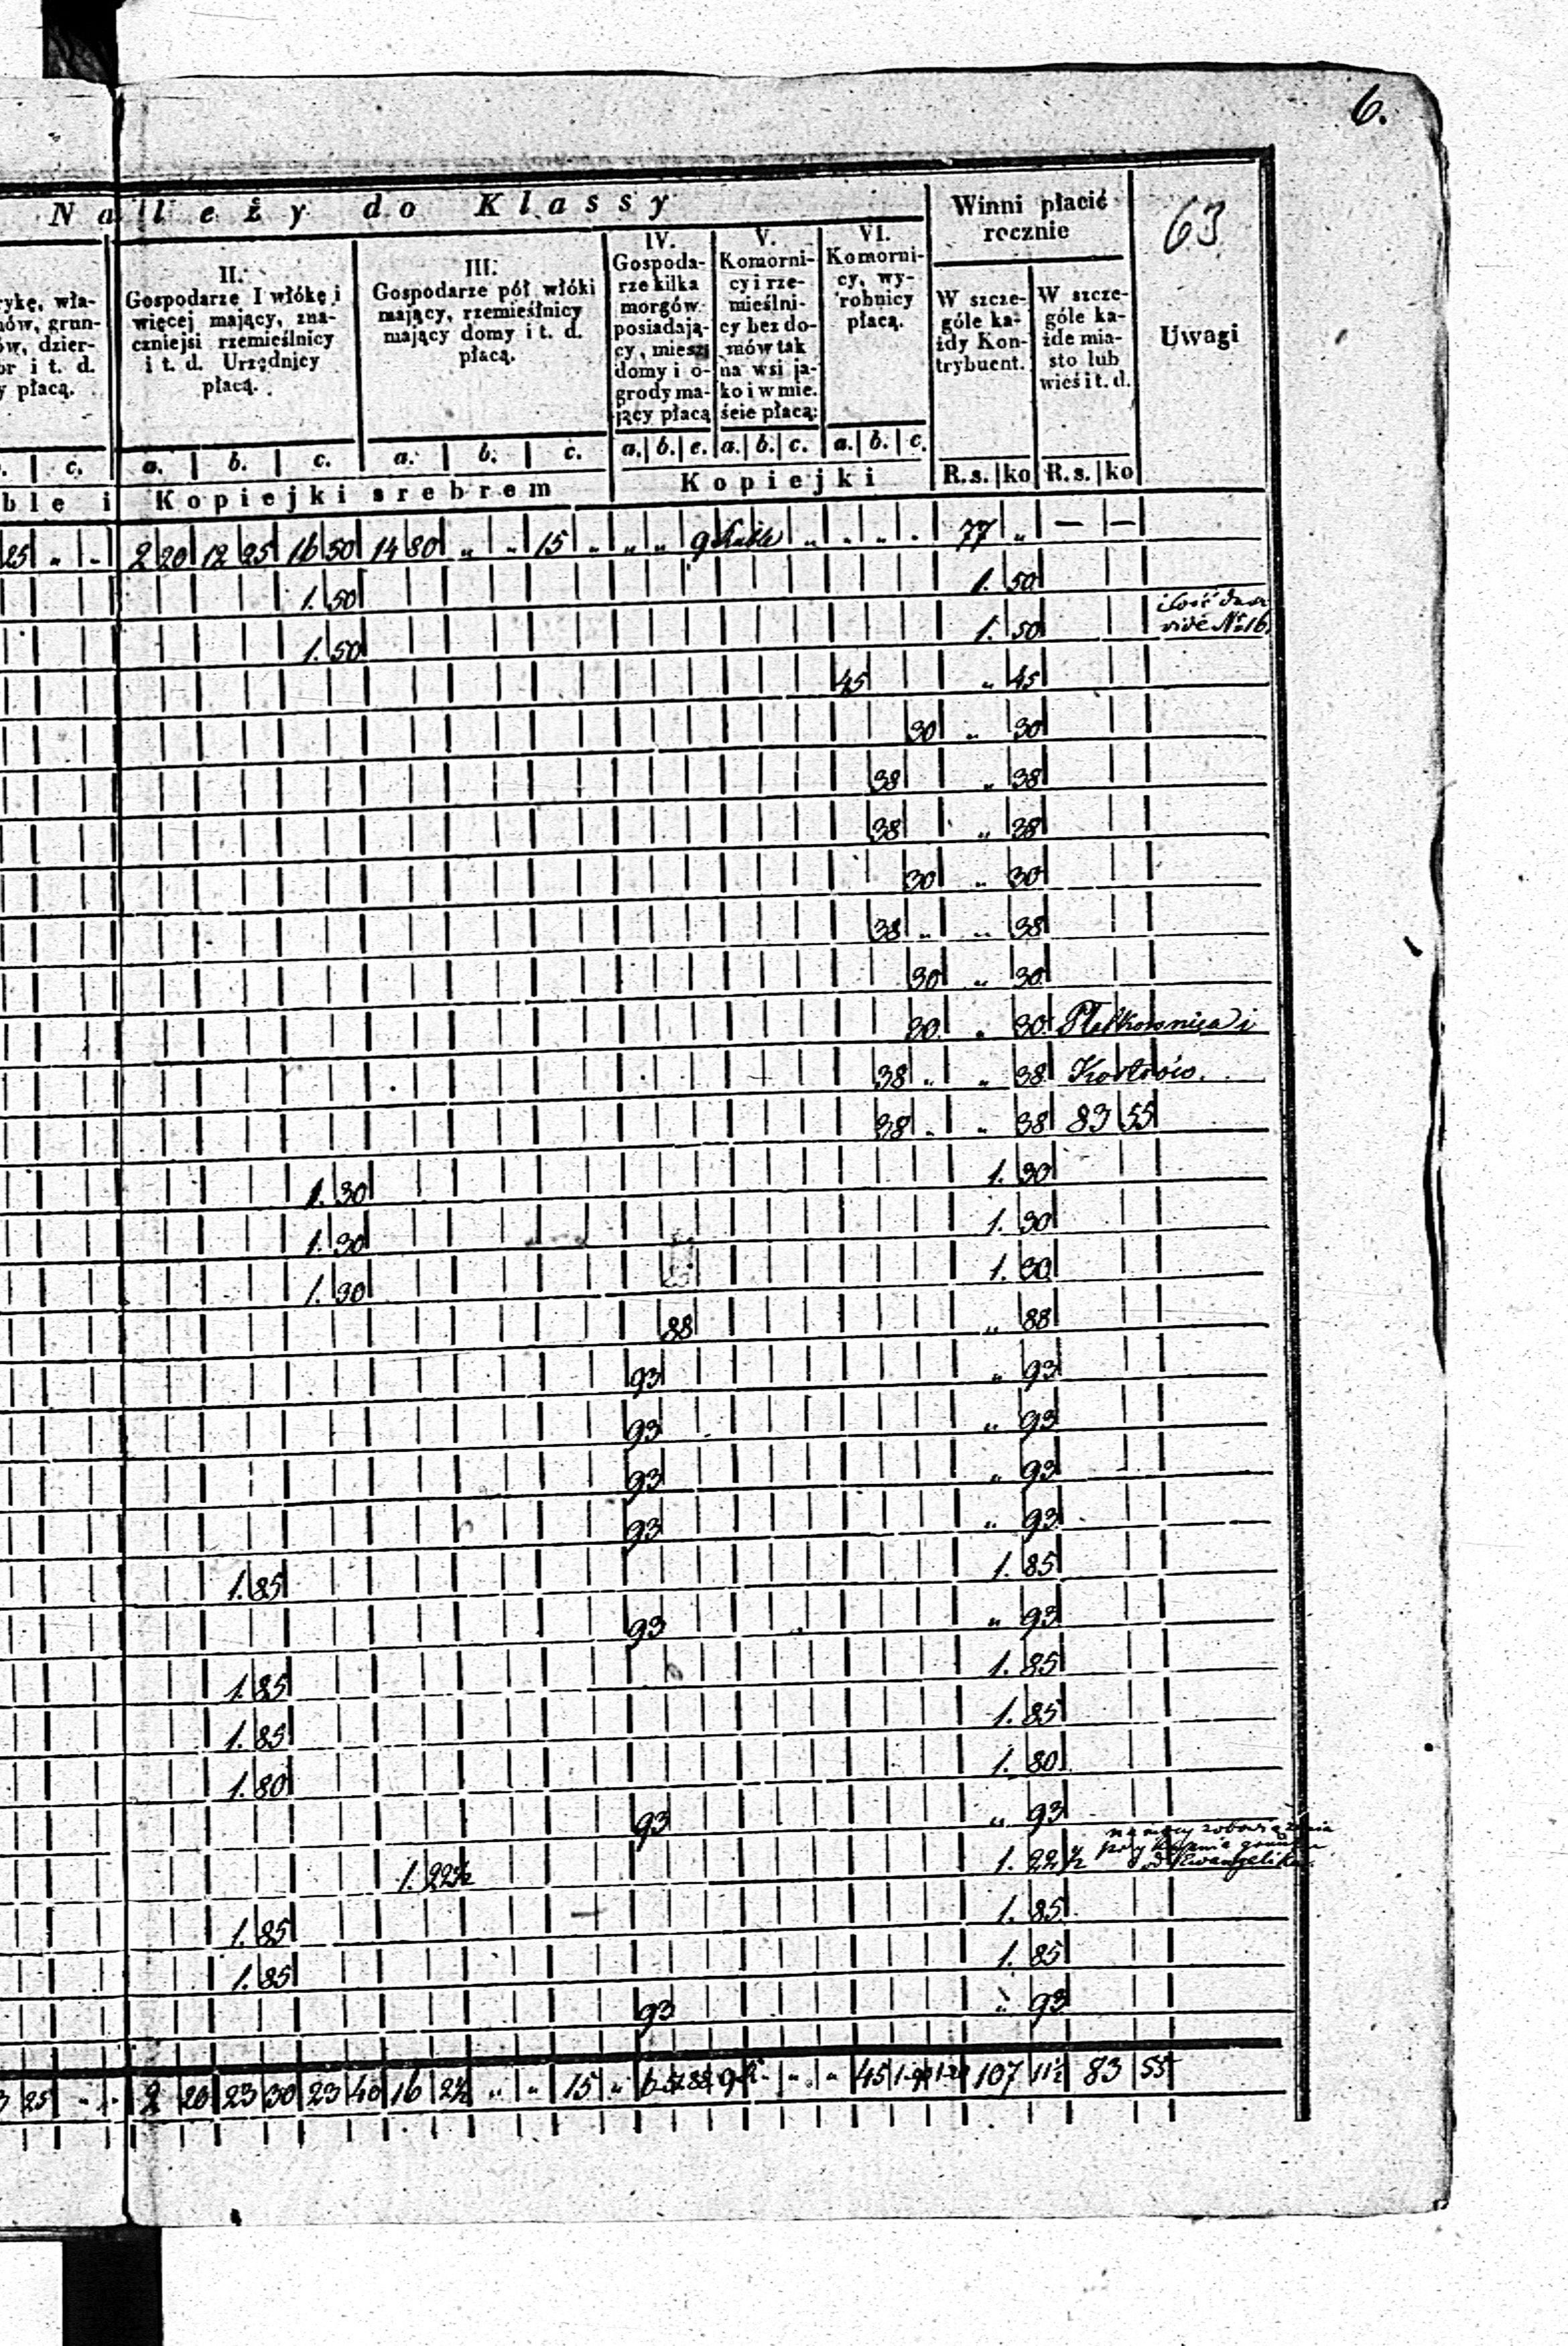 6.
Należy do Klassy
Winni płacić rocznie
63
Uwagi
rykę, wła-
ów, grun-
ów, dzier-
or i t. d.
y płacą.
II.
Gospodarze I włókę i
więcej mający, zna-
czniejsi rzemieślnicy
i t. d. Urzędnicy
płacą.
III.
Gospodarze pół włóki
mający, rzemieślnicy
mający domy i t. d.
płacą.
IV.
Gospoda-
rze kilka
morgów
posiadają-
cy, mieszk
domy i o-
grody ma-
jący płacą
V.
Komorni-
cy i rze-
mieślni-
cy bez do-
mów tak
na wsi ja-
ko i w mie.
ście płacą:
VI.
Komorni-
cy, wy-
robnicy
płacą.
W szcze-
góle ka-
żdy Kon-
trybuent.
W szcze-
góle ka-
żde mia-
sto lub
wieś i t. d.
c. a. b. c. a. b. c. a. b. c. a. b. c. a. b. c. R.s. ko R.s. ko
ble i Kopiejki srebrem Kopiejki
25 „ „ 2 20 12 25 16 50 14 80 „ „ 15 „ „ „ 9 „ „ „ „ 77 „ — —
1. 50 1. 50
1. 50 1. 50 vide No 16
45 „ 45
30 „ 30
38 „ 38
38 „ 38
30 „ 30
38 „ „ 38
30 „ 30
30 „ 30 i
38 „ „ 38
38 „ „ 38 83 55
1. 30 1. 30
1. 30 1. 30
1. 30 1. 30
88 „ 88
93 „ 93
93 „ 93
93 „ 93
93 „ 93
1. 85 1. 85
93 „ 93
1. 85 1. 85
1. 85 1. 85
1. 80 1. 80
93 „ 93
1. 22½ 1. 22½
1. 85 1. 85
1. 85 1. 85
93 „ 93
3 25 „ „ 2 20 23 30 23 40 16 2½ „ „ 15 „ 45 107 11½ 83 55